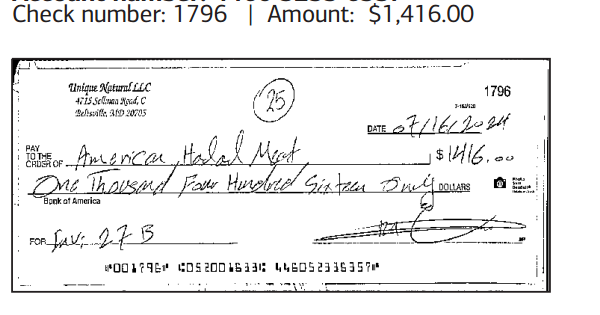 Check number: 1796 | Amount: $1,416.00
Unique Natural LLC
4715 Sellman Road, C
Beltsville, MD 20705
25
1796
DATE 07/16/2024
PAY TO THE ORDER OF American Halal Meat $1416.00
One Thousand Four Hundred Sixteen Only DOLLARS
Bank of America
FOR Inv: 27 B